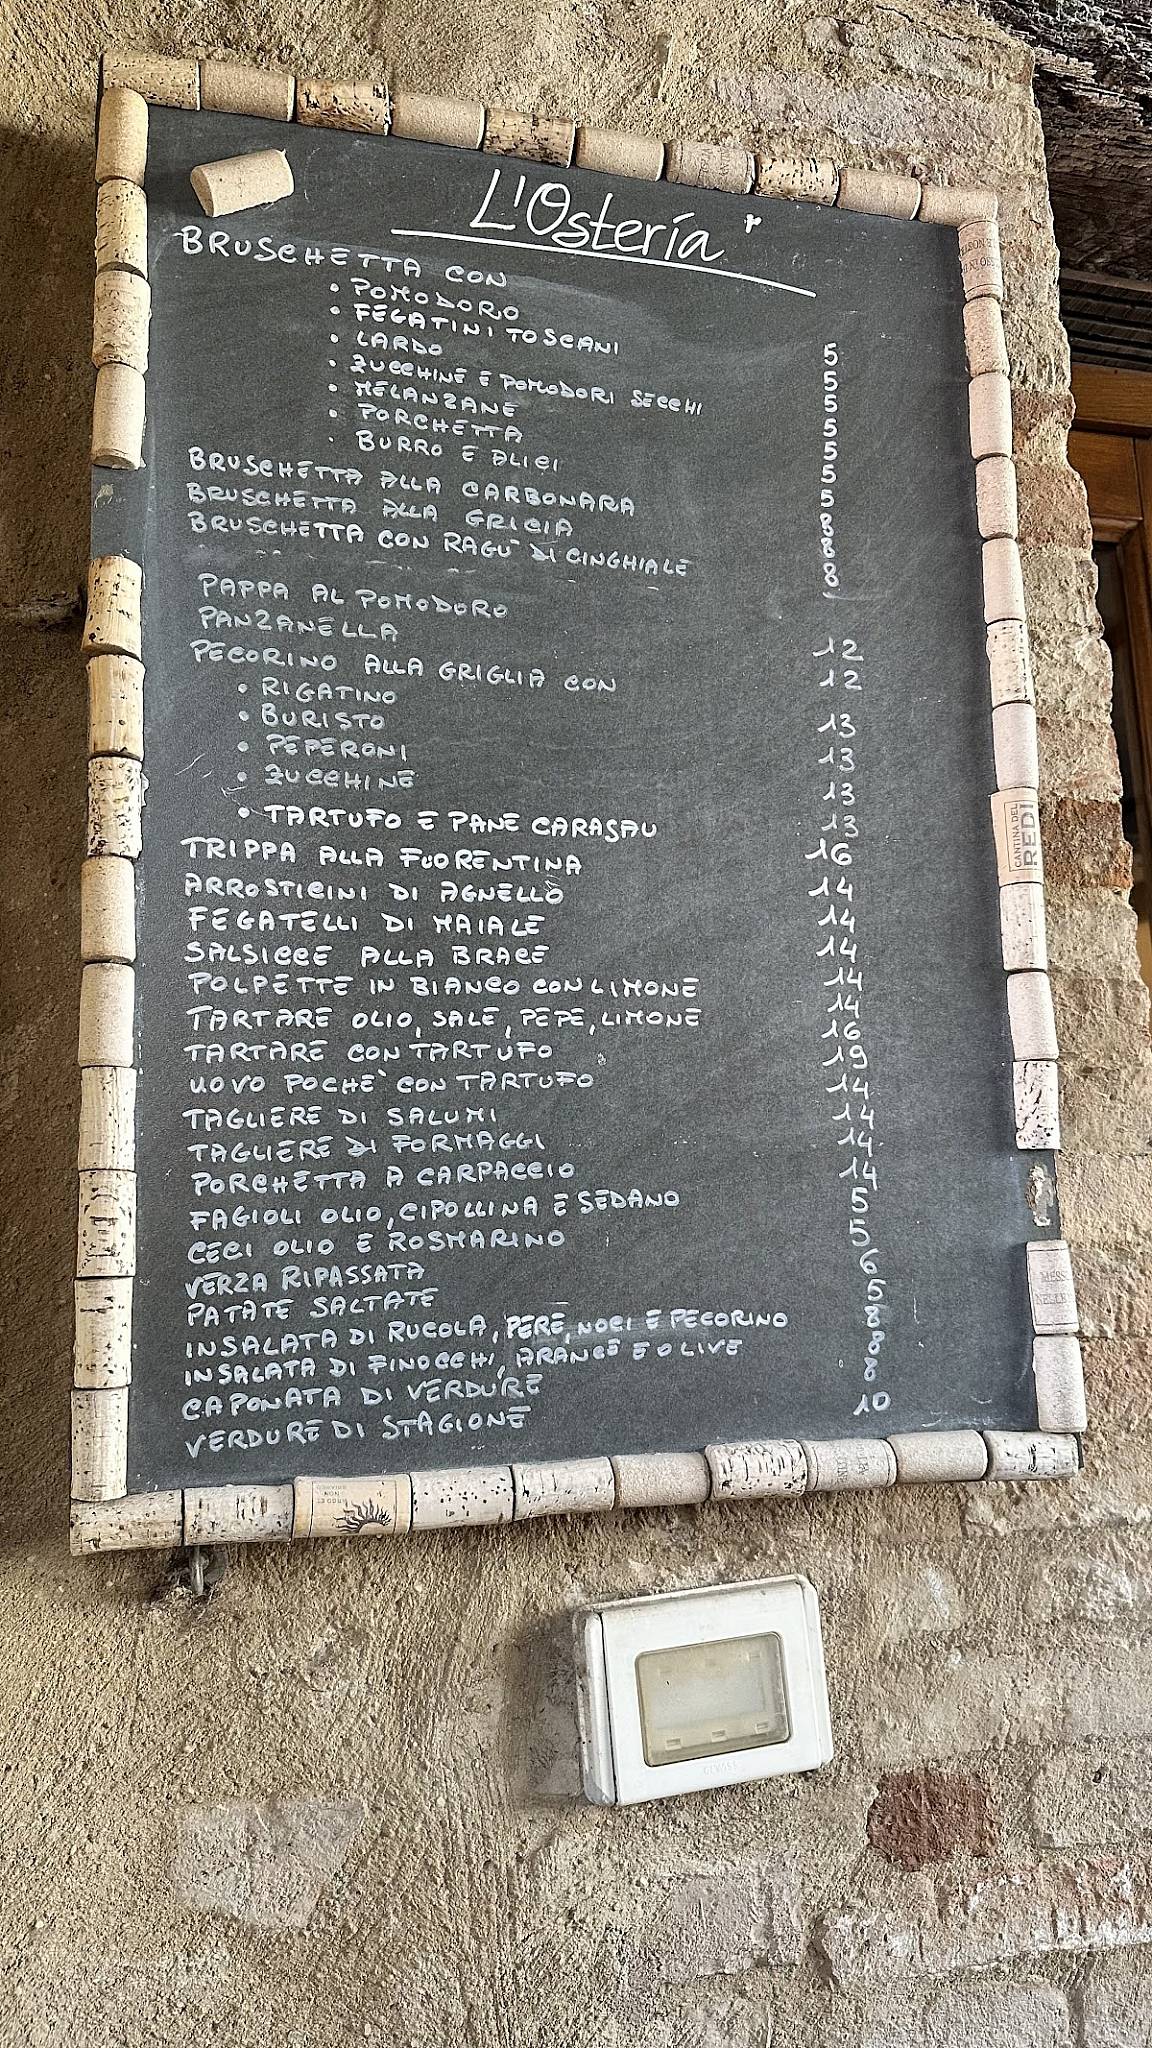 L'Osteria
BRUSCHETTA CON
• POMODORO 5
• FEGATINI TOSCANI 5
• LARDO 5
• ZUCCHINE E POMODORI SECCHI 5
• MELANZANE 5
• PORCHETTA 5
• BURRO E ALICI 5
BRUSCHETTA ALLA CARBONARA 8
BRUSCHETTA ALLA GRICIA 8
BRUSCHETTA CON RAGU' DI CINGHIALE 8
PAPPA AL POMODORO 12
PANZANELLA 12
PECORINO ALLA GRIGLIA CON
• RIGATINO 13
• BURISTO 13
• PEPERONI 13
• ZUCCHINE 13
• TARTUFO E PANE CARASAU 16
TRIPPA ALLA FIORENTINA 14
ARROSTICINI DI AGNELLO 14
FEGATELLI DI MAIALE 14
SALSICCE ALLA BRACE 14
POLPETTE IN BIANCO CON LIMONE 14
TARTARE OLIO, SALE, PEPE, LIMONE 16
TARTARE CON TARTUFO 19
UOVO POCHE' CON TARTUFO 14
TAGLIERE DI SALUMI 14
TAGLIERE DI FORMAGGI 14
PORCHETTA A CARPACCIO 14
FAGIOLI OLIO, CIPOLLINA E SEDANO 5
CECI OLIO E ROSMARINO 5
VERZA RIPASSATA 6
PATATE SALTATE 5
INSALATA DI RUCOLA, PERE, NOCI E PECORINO 8
INSALATA DI FINOCCHI, ARANCE E OLIVE 8
CAPONATA DI VERDURE 8
VERDURE DI STAGIONE 10
CANTINA DEL
REDI